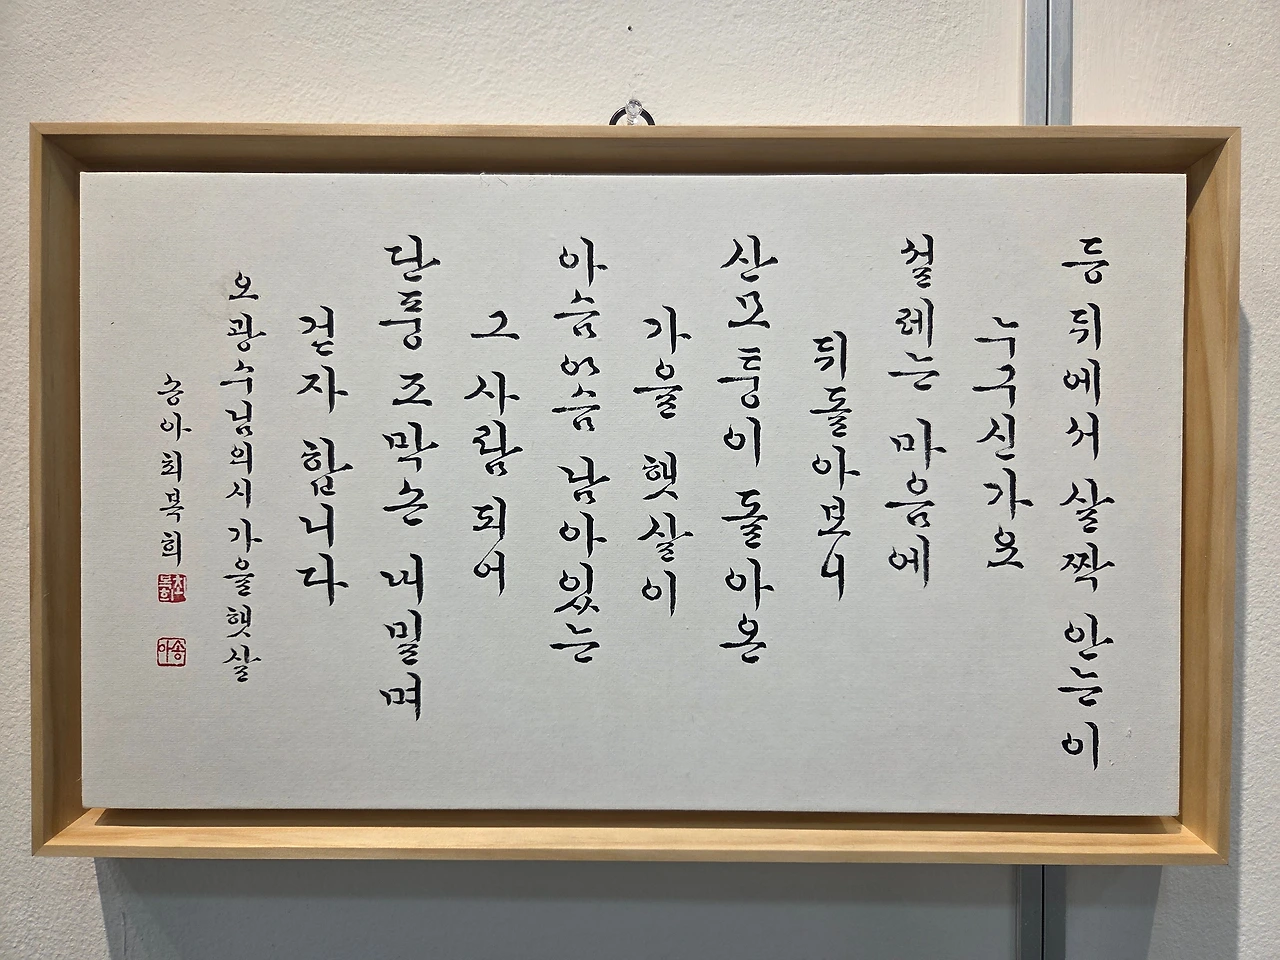 등 뒤에서 살짝 안는 이
누구신가요
설레는 마음에
뒤돌아보니
산모퉁이 돌아온
가을 햇살이
아슴아슴 남아있는
그 사람 되어
단풍 조막손 내밀며
걷자 합니다
오광수님의 시 가을 햇살
송아 최복희
최복희
송아